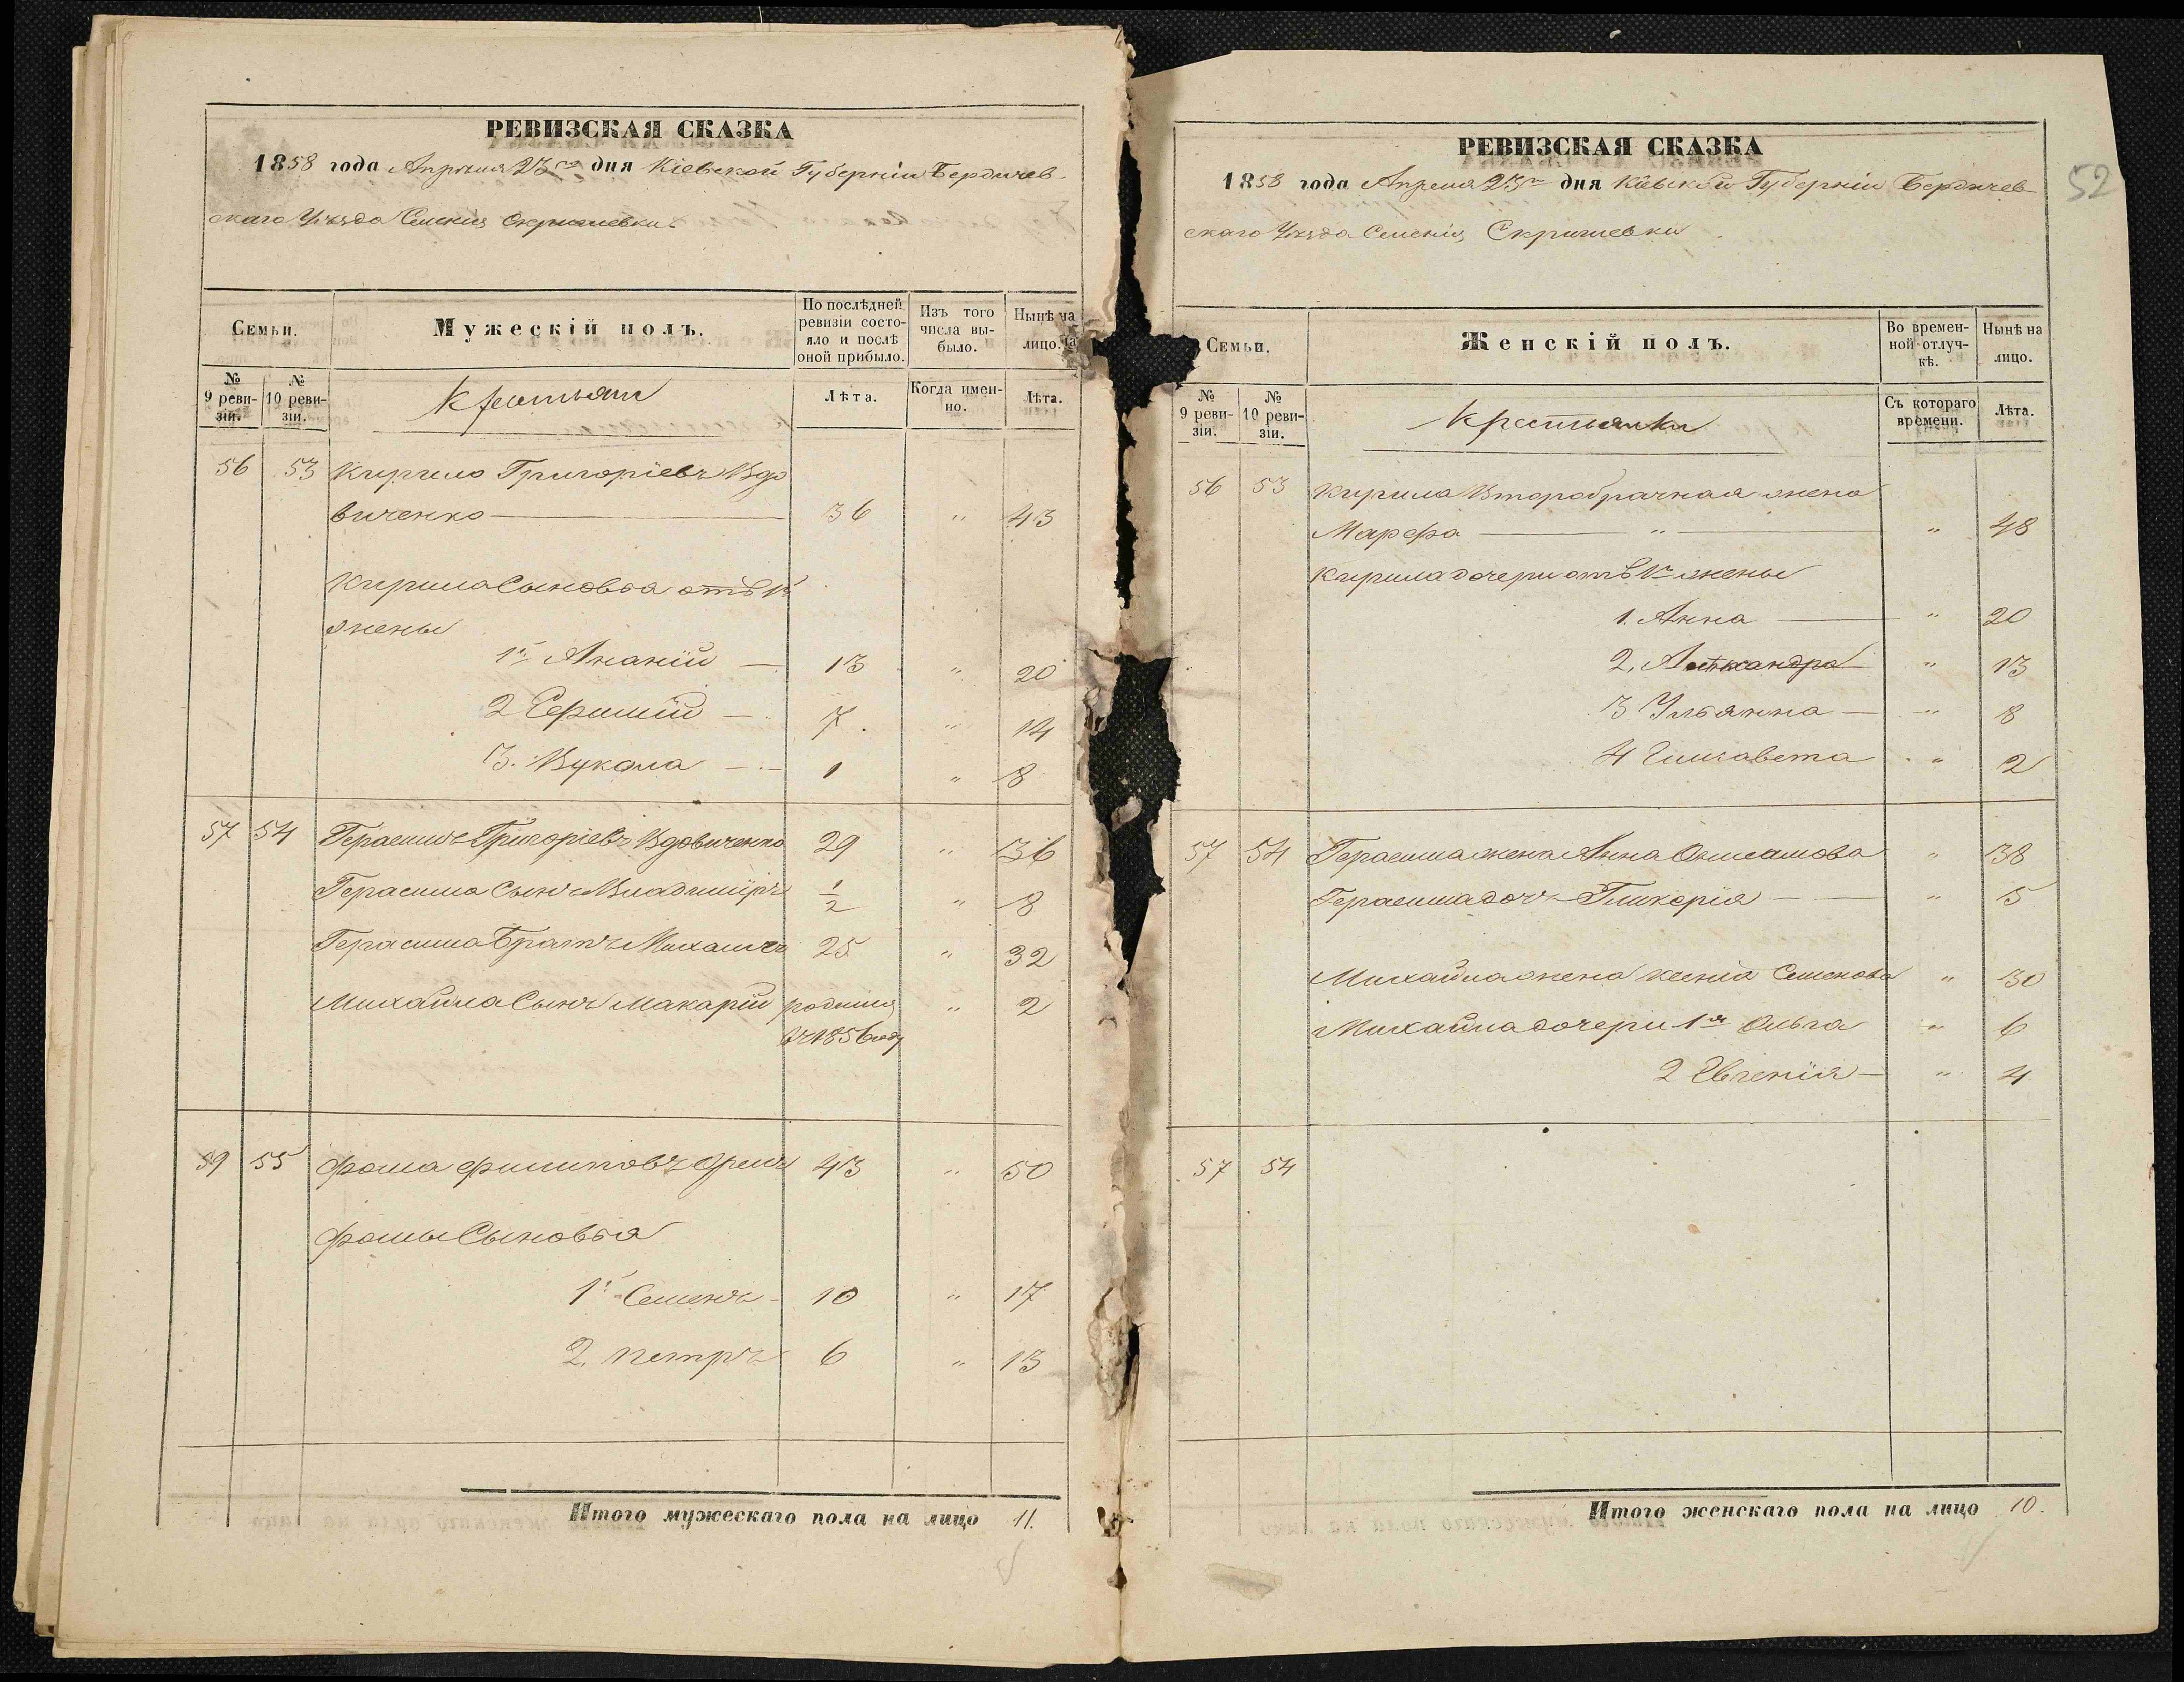 РЕВИЗСКАЯ СКАЗКА
1858 года Апрѣля 23го дня Кіевской Губерніи Бердичев-
скаго Уѣзда Селенія Скригилевки
Семьи.
Мужескій полъ.
По послѣдней ревизіи состо-яло и послѣ оной прибыло.
Изъ того числа вы-было.
Нынѣ на лицо.
№ 9 реви-зіи.
№ 10 реви-зіи.
Крестьяне
Лѣта.
Когда имен-но.
Лѣта.
56 53 Кирило Григоріевъ Вдо
виченко 36 " 43
Кирила Сыновья отъ 1й
жены
1й Ананій 13 " 20
2 Ефимій 7 " 14
3. Вукола 1 " 8
57 54 Герасимъ Григоріевъ Вдовиченко 29 " 36
Герасима Сынъ Владиміръ 1/2 " 8
Герасима Братъ Михаилъ 25 " 32
Михайла Сынъ Макарій родился " 2
въ 1856 году
59 55 Фома Филиповъ 43 " 50
Фомы Сыновья
1й Семенъ 10 " 17
2. Петръ 6 " 13
Итого мужескаго пола на лицо 11.
52
РЕВИЗСКАЯ СКАЗКА
1858 года Апреля 23го дня Кіевской Губерніи Бердичев-
скаго Уѣзда Селенія Скригилевки
Семьи.
Женскій полъ.
Во времен-ной отлуч-кѣ.
Нынѣ на лицо.
№ 9 реви-зіи.
№ 10 реви-зіи.
Крестьянки
Съ котораго времени.
Лѣта.
56 53 Кирила Второбрачная жена
Марфа " " 48
Кирила дочери отъ 1й жены
1. Анна " 20
2. Александра " 13
3 Ульянна " 8
4 Елисавета " 2
57 54 Герасима жена Анна " 38
Герасима дочь Гликерія " 5
Михайла жена Ксенія Семенова " 30
Михайла дочери 1я Ольга " 6
2 Евгенія " 4
57 54
Итого женскаго пола на лицо 10.